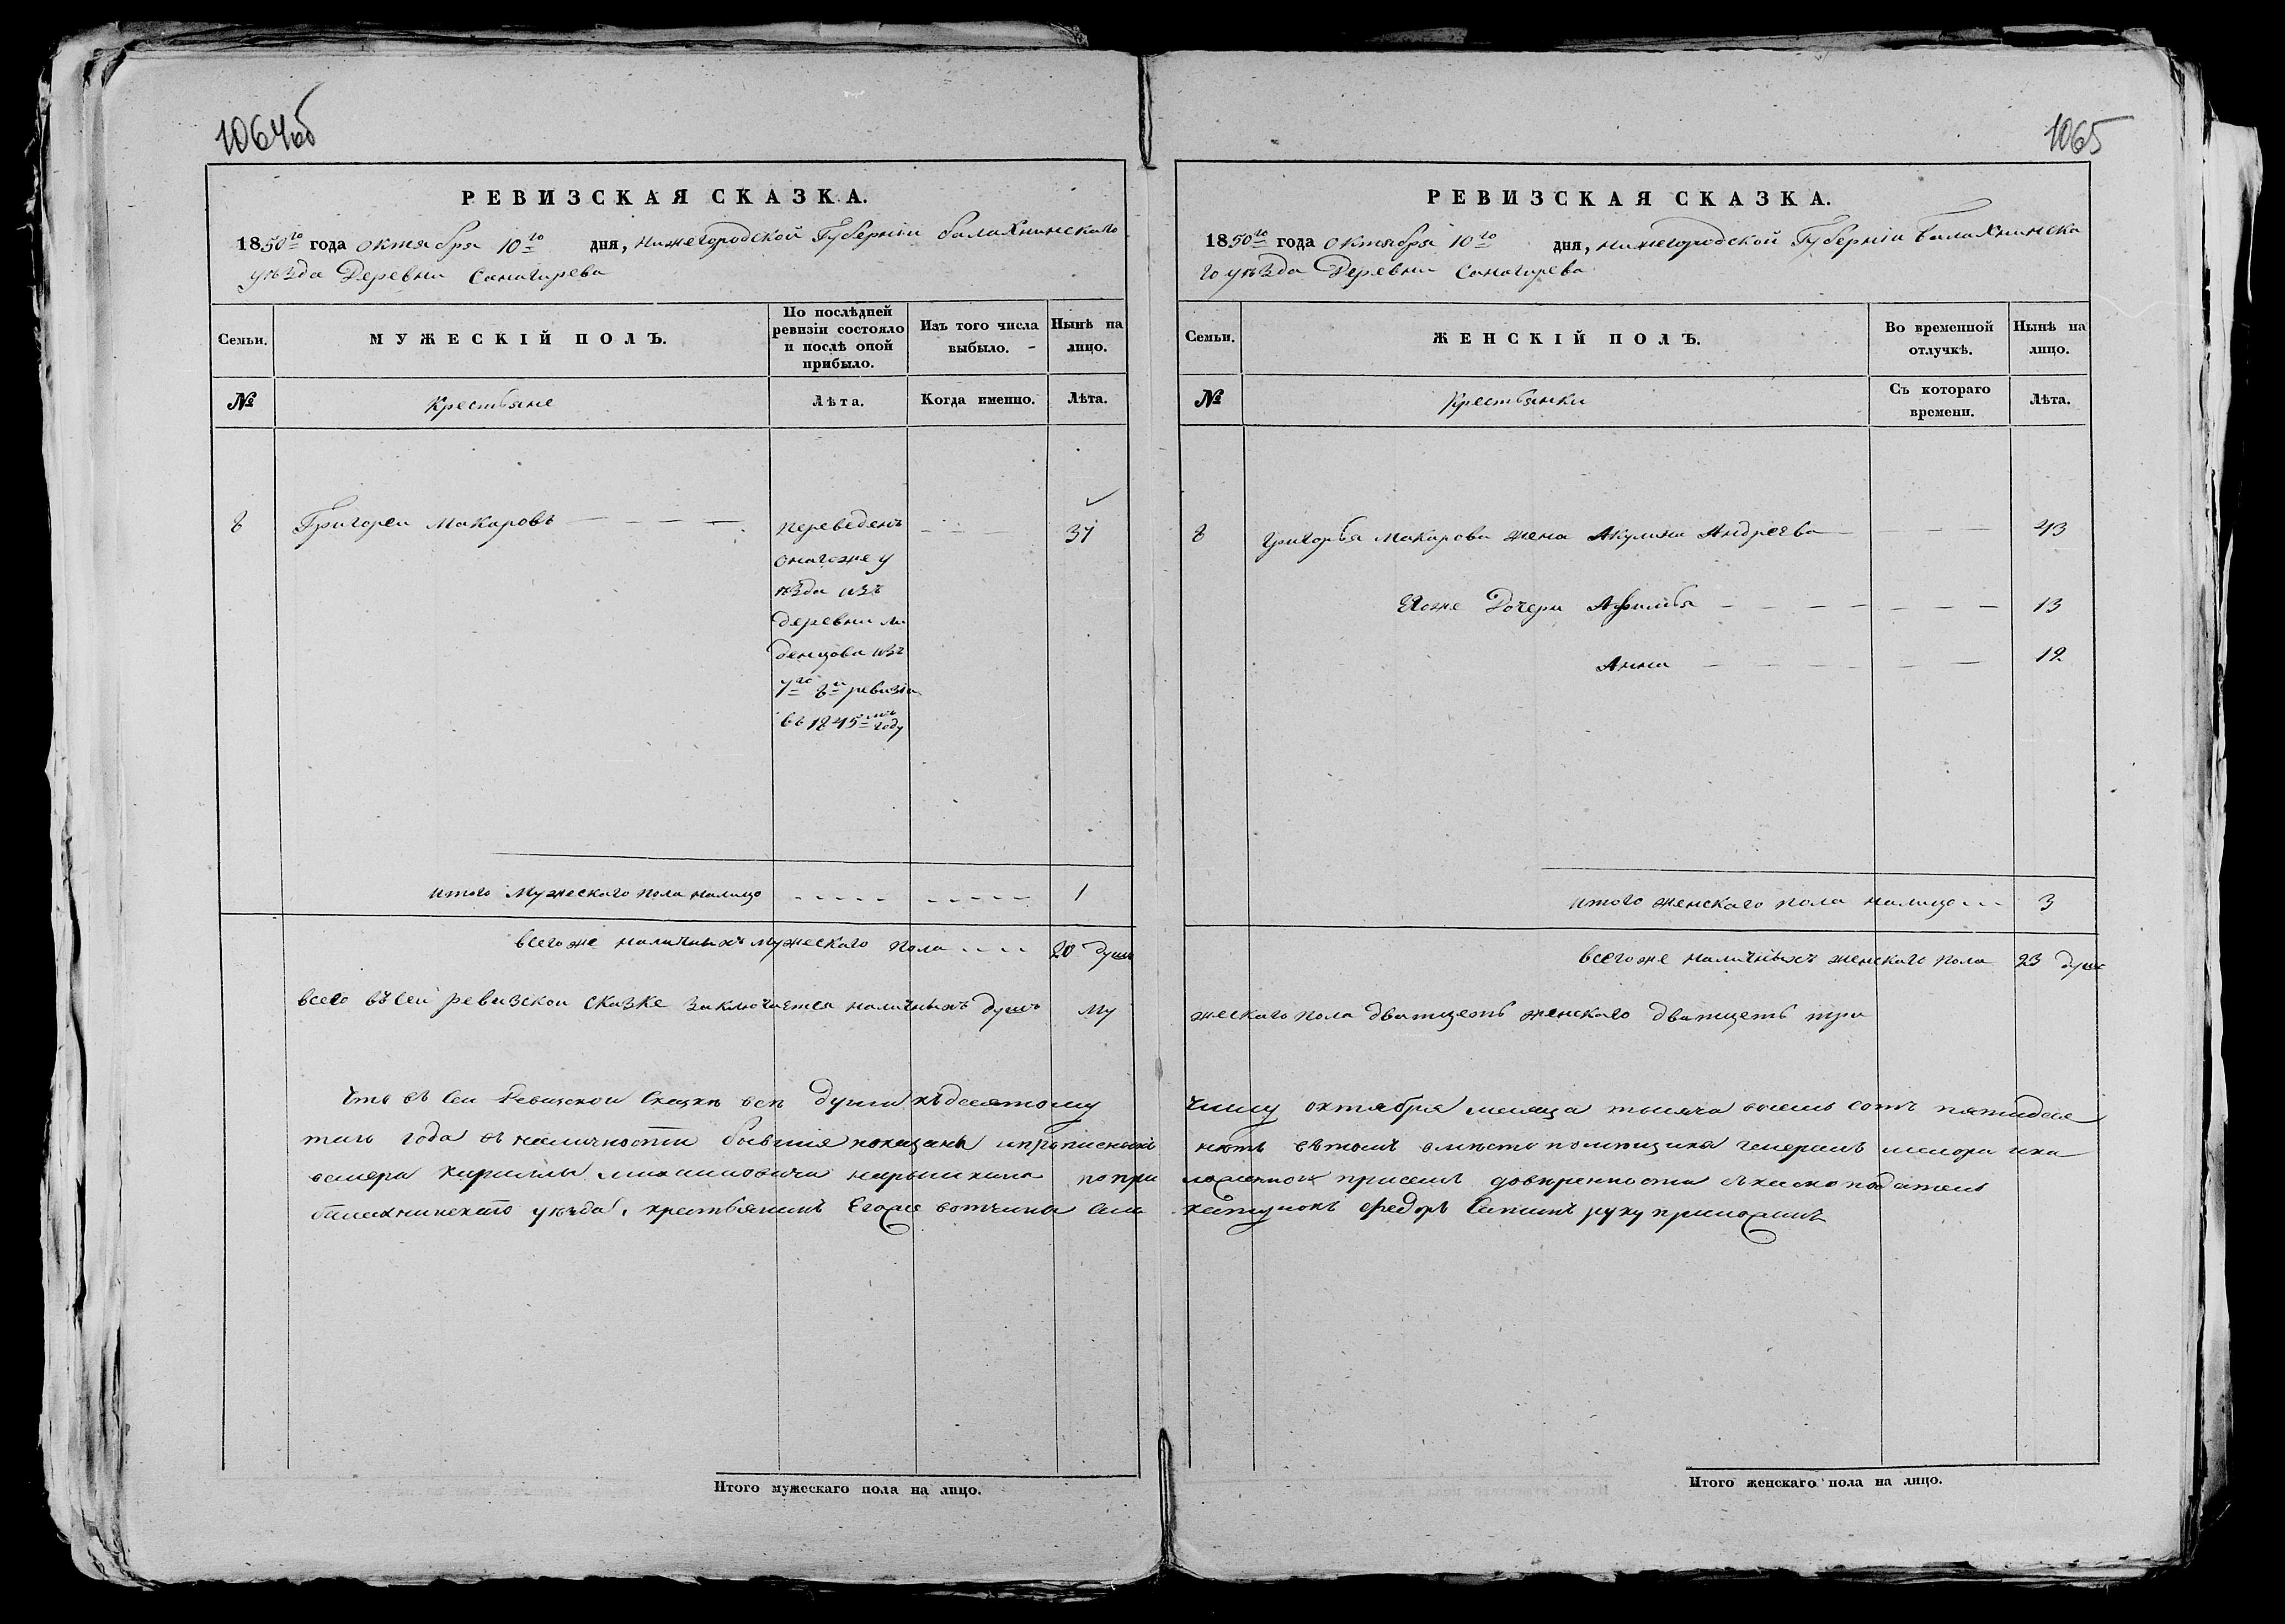 1064об
РЕВИЗСКАЯ СКАЗКА.
1850го года октября 10го дня, нижегородской Губернiи балахнинскаго
уѣзда Деревни Санагирева
Семьи.
МУЖЕСКIЙ ПОЛЪ.
По послѣдней
ревизiи состояло
и послѣ оной
прибыло.
Изъ того числа
выбыло.
Нынѣ на
лицо.
№
Крестьяне
Лѣта.
Когда именно.
Лѣта.
8
Григореи Макаровъ
переведенъ
онагоже у
ѣзда изъ
деревни ми
денцова изъ
8й ревизiи
въ 1845мъ году
37
итого Мужескаго пола налицо
1
всегоже наличныхъ мужескаго пола
20 душъ
всего въ сеи ревизскои сказке заключается наличныхъ душъ му
Что въ сеи Ревизскои Сказкѣ всѣ души къ десятому
таго года въ наличности бывшiя показаны и прописныхъ
маера кириллы михаиловича нарышкина по при
балахнинскаго уѣзда крестьянинъ Егоже вотчины
Итого мужескаго пола на лицо.
1065
РЕВИЗСКАЯ СКАЗКА.
1850го года октября 10го дня, нижегородской Губернiи балахнинска
го уѣзда Деревни Санагирева
Семьи.
ЖЕНСКIЙ ПОЛЪ.
Во временной
отлучкѣ.
Нынѣ на
лицо.
№
Крестьянки
Съ котораго
времени.
Лѣта.
8
Григорья Макарова жена Акулина Андреева
43
Егоже Дочери Афимья
13
Анна
12
итого женскаго пола налицо
3
всегоже наличныхъ женскаго пола
23 душъ
жескаго пола дватцеть женскаго дватцеть три
числу октября месяца тысяча восемь сотъ пятидеся
нѣтъ въ томъ вмѣсто помѣщика генералъ
ложенной присемъ довѣренности
Федоръ руку приложилъ
Итого женскаго пола на лицо.